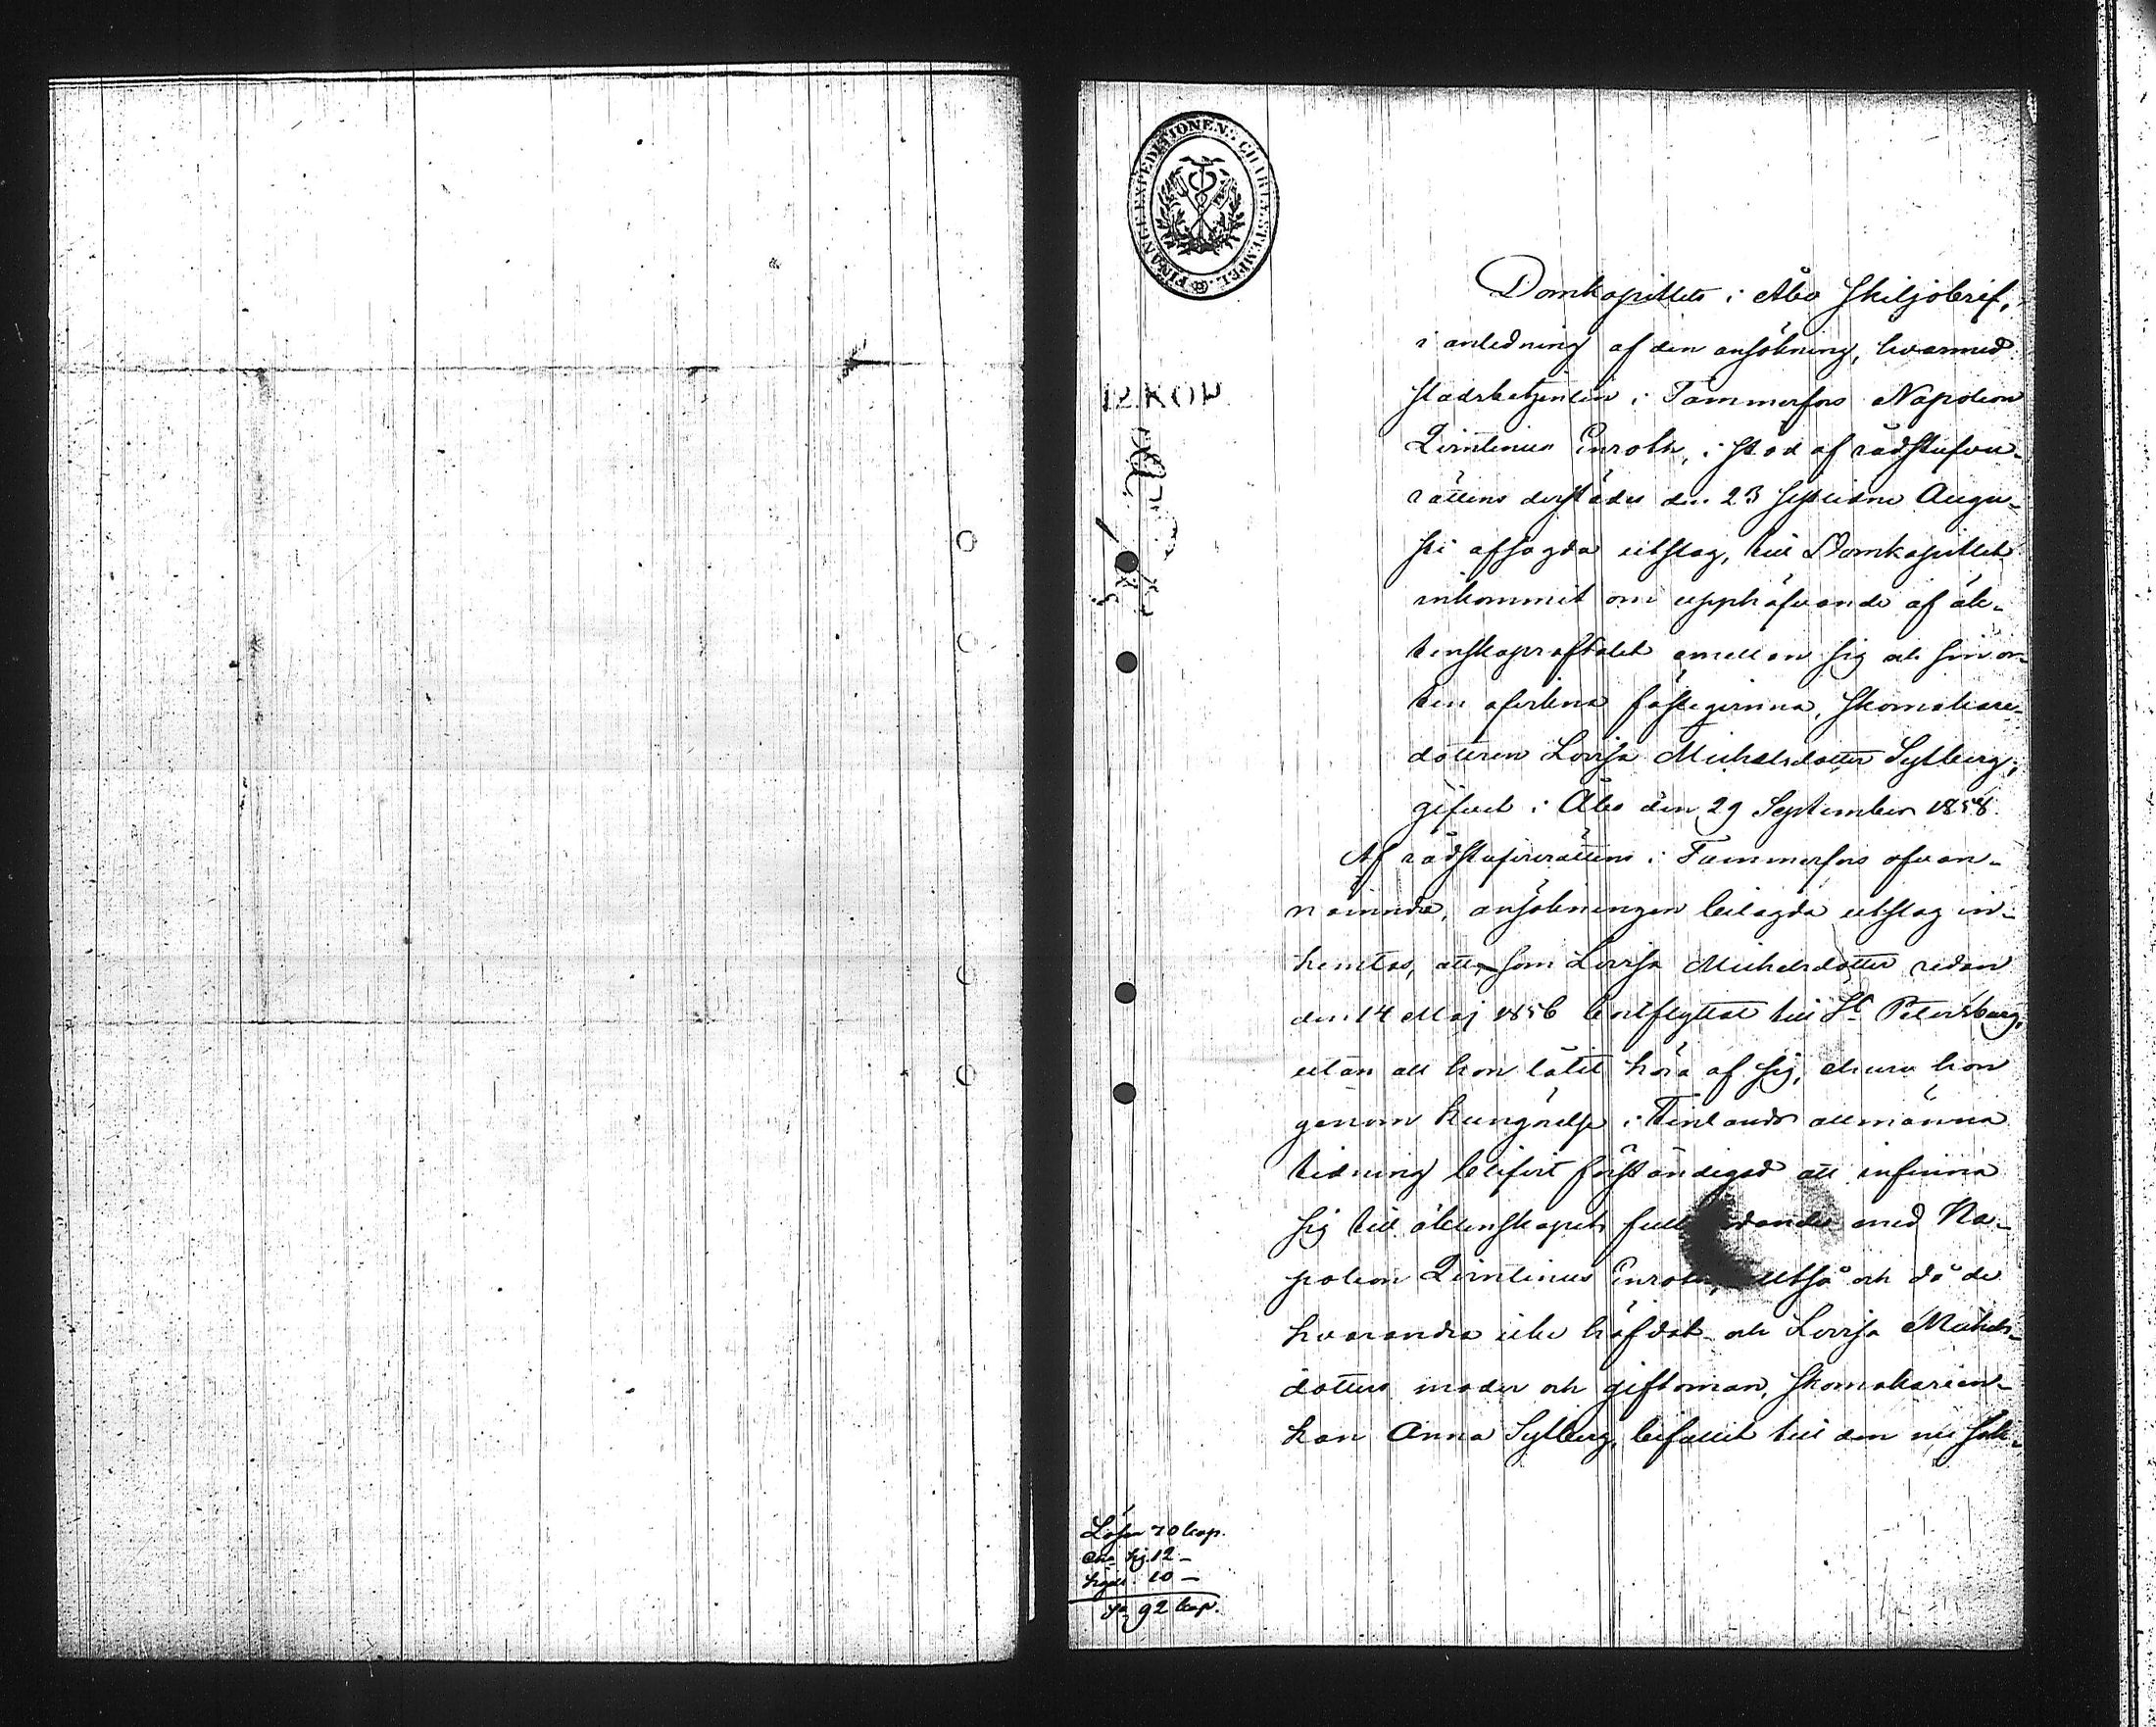 FINANCE-EXPEDITIONEN: CHARTÆ.STEMPEL.
12 KOP.
Domkapitlets i Åbo skiljobref,
i anledning af den ansökning, hvarmed
stadsbetjenten i Tammerfors Napoleon
Qvintinus Enroth, i stöd af rådstufvu-
rättens derstädes den 23 sistlidne Augu-
sti afsagda utslag, till Domkapitlet
inkommit om upphäfvande af äk-
tenskapsaftalet emellan sig och sin
fästeqvinna, skomakare-
dottren Lovisa Michelsdotter Sylberg;
gifvet i Åbo den 29 September 1858.
Af rådstufvurättens i Tammerfors ofvan-
nämnde, ansökningen bilagda utslag in-
hemtas, att, som Lovisa Michelsdotter redan
den 14 Maj 1856 bortflyttat till St Petersburg,
utan att hon låtit höra af sig, ehuru hon
genom kungörelse i Finlands allmänna
tidning blifvit förständigad att infinna
sig till äktenskapets med Na-
poleon Qvintinus Enroth, alltså och då de
hvarandra icke häfdat och Lovisa Michels-
dotters moder och giftoman, skomakareen-
kan Anna Sylberg, bifallit till den nu sök-
Lösen 70 kop.
12 –
10 –
Sa 92 kop.